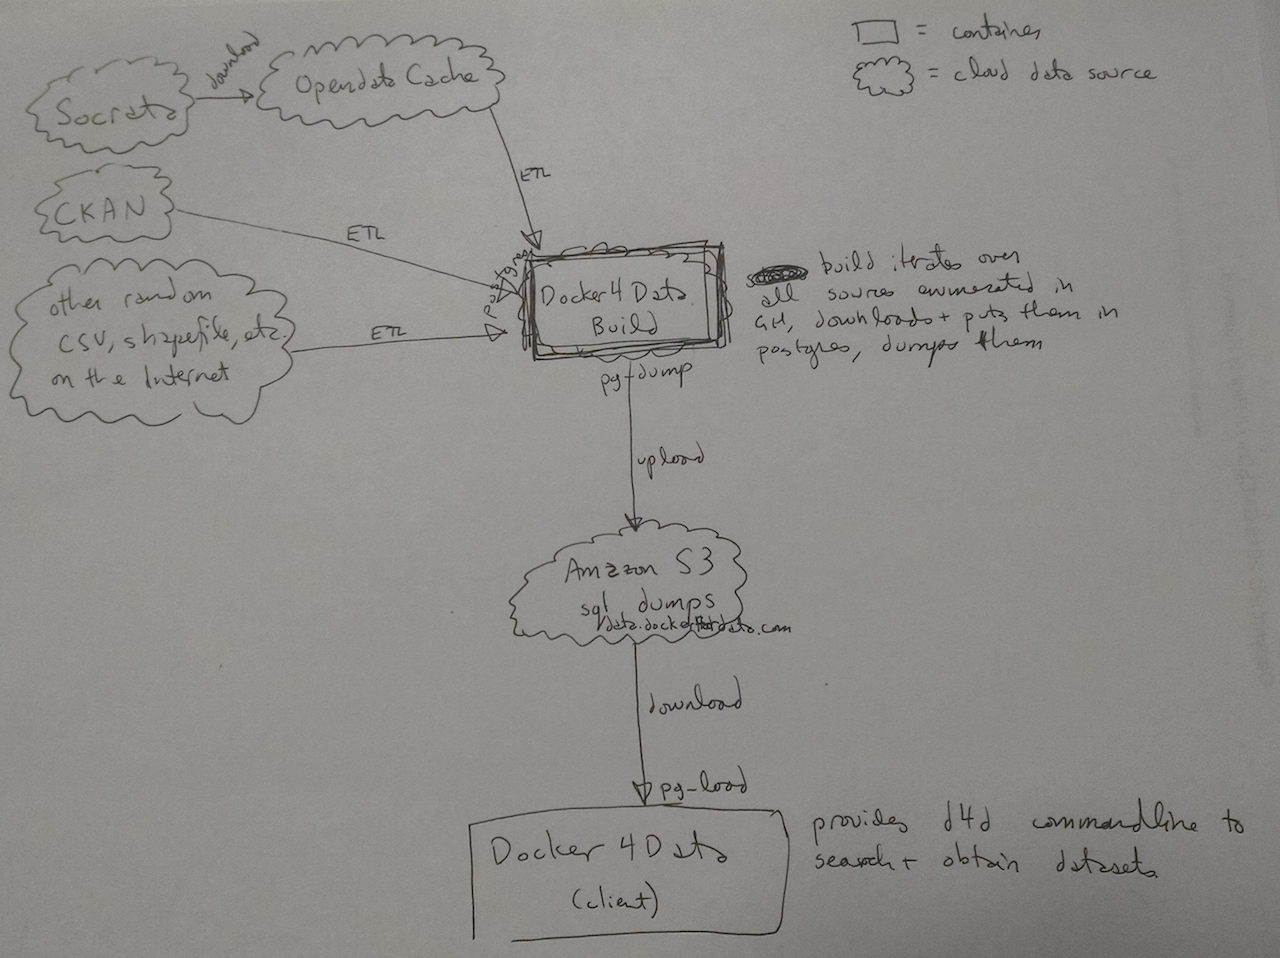 = container
= cloud data source
Socrata
download
Opendata Cache
ETL
CKAN
ETL
other random
CSV, shapefile, etc
on the Internet
ETL
postgres
Docker4Data
Build
build iterates over
all sources enumerated in
GH, downloads + puts them in
postgres, dumps them
pg-dump
upload
Amazon S3
sql dumps
download
pg-load
Docker 4Data
(client)
provides d4d commandline to
search + obtain datasets